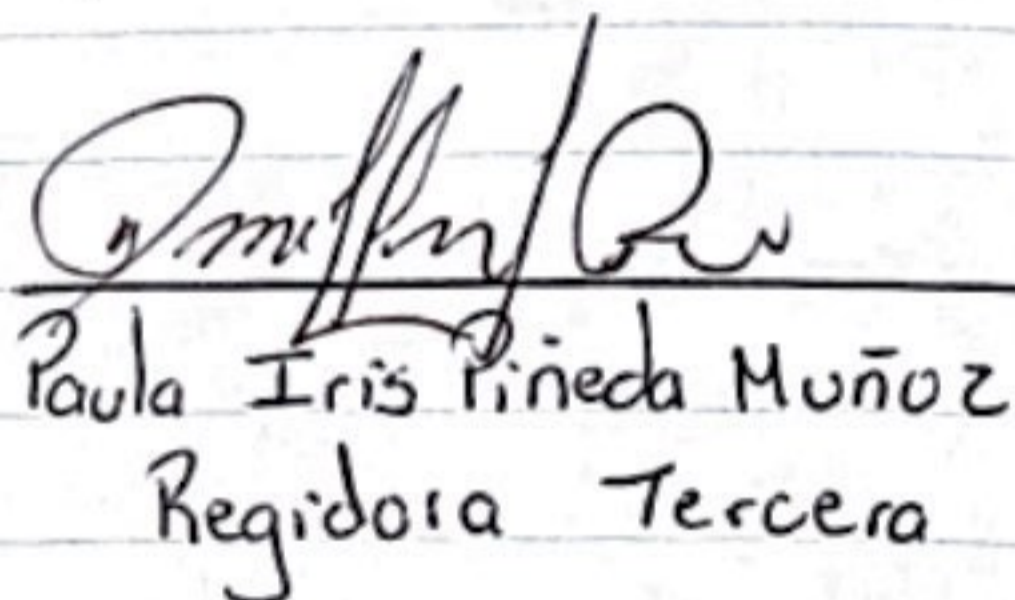 Paula Iris Piñeda Muñoz
Regidora Tercera